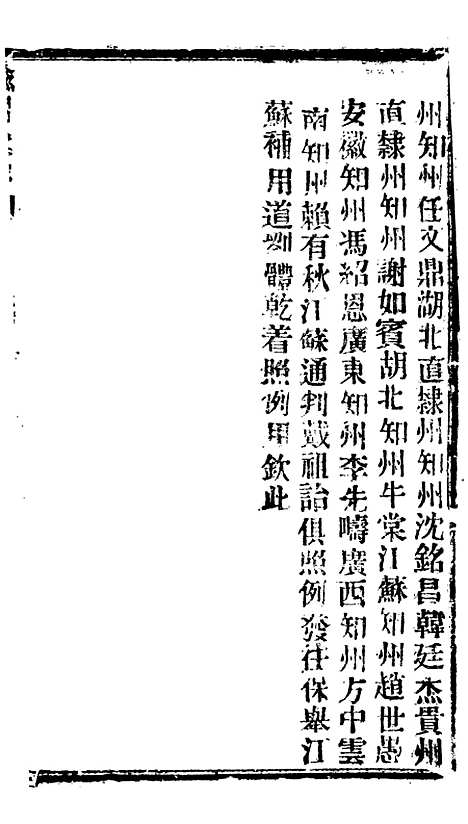 州知州任文鼎湖北直隸州知州沈銘昌韓廷杰貴州
直隸州知州謝如賓胡北知州牛棠江蘇知州趙世愚
安徽知州馮紹恩廣東知州李先疇廣西知州方中雲
南知州賴有秋江蘇通判戴祖詒俱照例發往保舉江
蘇補用道劉體乾着照例用欽此